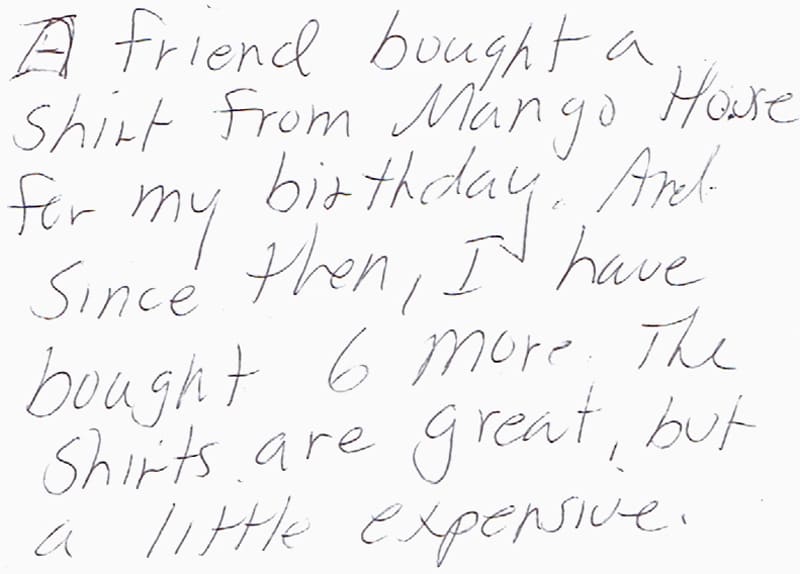 A friend bought a
shirt from Mango House
for my birthday. And
since then, I have
bought 6 more. The
shirts are great, but
a little expensive.